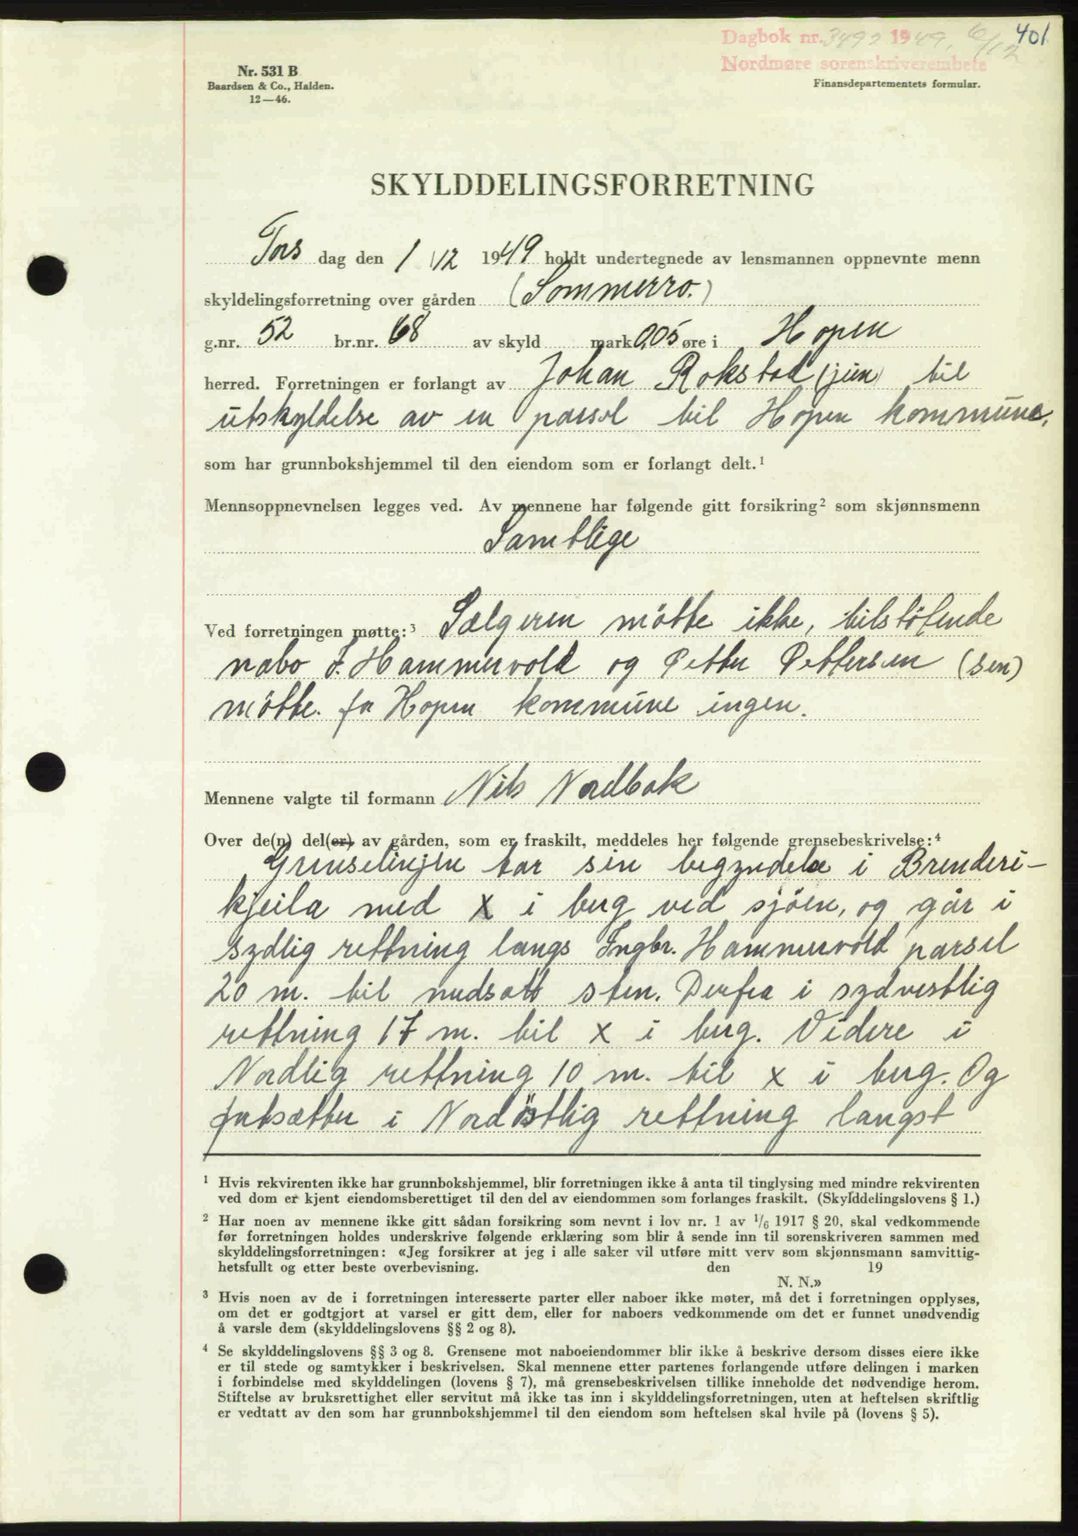 Dagbok nr. 3492 1949, 6/12 401
Nordmøre sorenskriverembete
Nr. 531 B
Baardsen & Co., Halden.
12—46.
Finansdepartementets formular.
SKYLDDELINGSFORRETNING
Tors dag den 1/12 1949 holdt undertegnede av lensmannen oppnevnte menn
skyldelingsforretning over gården (Sommerro.)
g.nr. 52 br.nr. 68 av skyld mark 0,05 øre i Hopen
herred. Forretningen er forlangt av Johan Rokstad (jun) til
utskyldelse av en parsel til Hopen kommune,
som har grunnbokshjemmel til den eiendom som er forlangt delt.¹
Mennsoppnevnelsen legges ved. Av mennene har følgende gitt forsikring² som skjønnsmenn
Samtlige
Ved forretningen møtte:³ Sælgeren møtte ikke, tilstøtende
nabo I. Hammervold og Petter Pettersen (sen)
møtte. for Hopen kommune ingen.
Mennene valgte til formann Nils Nordbak
Over de(n) del(er) av gården, som er fraskilt, meddeles her følgende grensebeskrivelse:⁴
Grenselinjen tar sin begyndelse i Brenderi-
kjeila med X i berg ved sjøen, og går i
sydlig rettning langs Ingbr. Hammervold parsel
20 m. til nedsatt sten. Derfra i sydvestlig
rettning 17 m. til x i berg. Videre i
Nordlig rettning 10 m. til x i berg. Og
fortsætter i Nordøstlig rettning langst
¹ Hvis rekvirenten ikke har grunnbokshjemmel, blir forretningen ikke å anta til tinglysing med mindre rekvirenten
ved dom er kjent eiendomsberettiget til den del av eiendommen som forlanges fraskilt. (Skylddelingslovens § 1.)
² Har noen av mennene ikke gitt sådan forsikring som nevnt i lov nr. 1 av 1/6 1917 § 20, skal vedkommende
før forretningen holdes underskrive følgende erklæring som blir å sende inn til sorenskriveren sammen med
skylddelingsforretningen: «Jeg forsikrer at jeg i alle saker vil utføre mitt verv som skjønnsmann samvittig-
hetsfullt og etter beste overbevisning. den 19
N. N.»
³ Hvis noen av de i forretningen interesserte parter eller naboer ikke møter, må det i forretningen opplyses,
om det er godtgjort at varsel er gitt dem, eller for naboers vedkommende om det er funnet unødvendig
å varsle dem (skylddelingslovens §§ 2 og 8).
⁴ Se skylddelingslovens §§ 3 og 8. Grensene mot naboeiendommer blir ikke å beskrive dersom disses eiere ikke
er til stede og samtykker i beskrivelsen. Skal mennene etter partenes forlangende utføre delingen i marken
i forbindelse med skylddelingen (lovens § 7), må grensebeskrivelsen tillike inneholde det nødvendige herom.
Stiftelse av bruksrettighet eller servitut må ikke tas inn i skylddelingsforretningen, uten at heftelsen skriftlig
er vedtatt av den som har grunnbokshjemmel til den eiendom som heftelsen skal hvile på (lovens § 5).